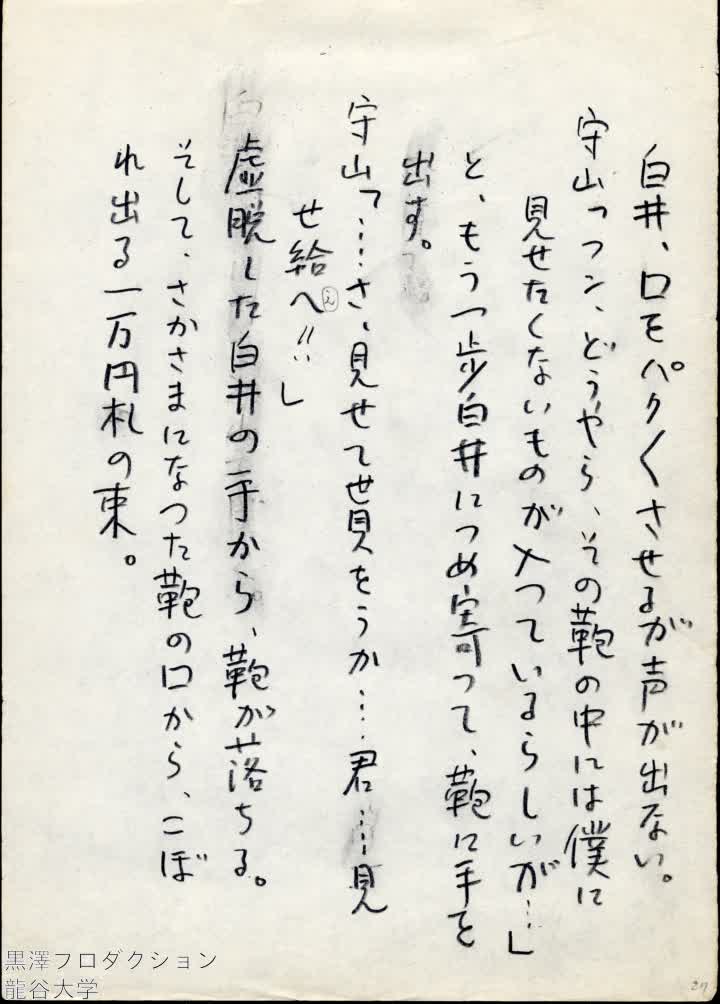 白井、口をパク〱させるが声が出ない。
守山「フン、どうやら、その鞄の中には僕に
見せたくないものが入つているらしいが…」
と、もう一歩白井につめ寄って、鞄に手を
出す。
守山「……さ、見せて貰をうか…君…見
せ給へ〃…」
え
虚脱した白井の手から、鞄が落ちる。
そして、さかさまになつた鞄の口から、こぼ
れ出る一万円札の束。
27
黒澤プロダクション
龍谷大学